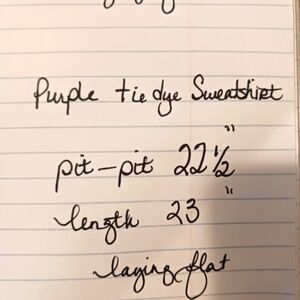 Purple tie dye Sweatshirt
pit-pit 22 1/2"
length 23"
laying flat